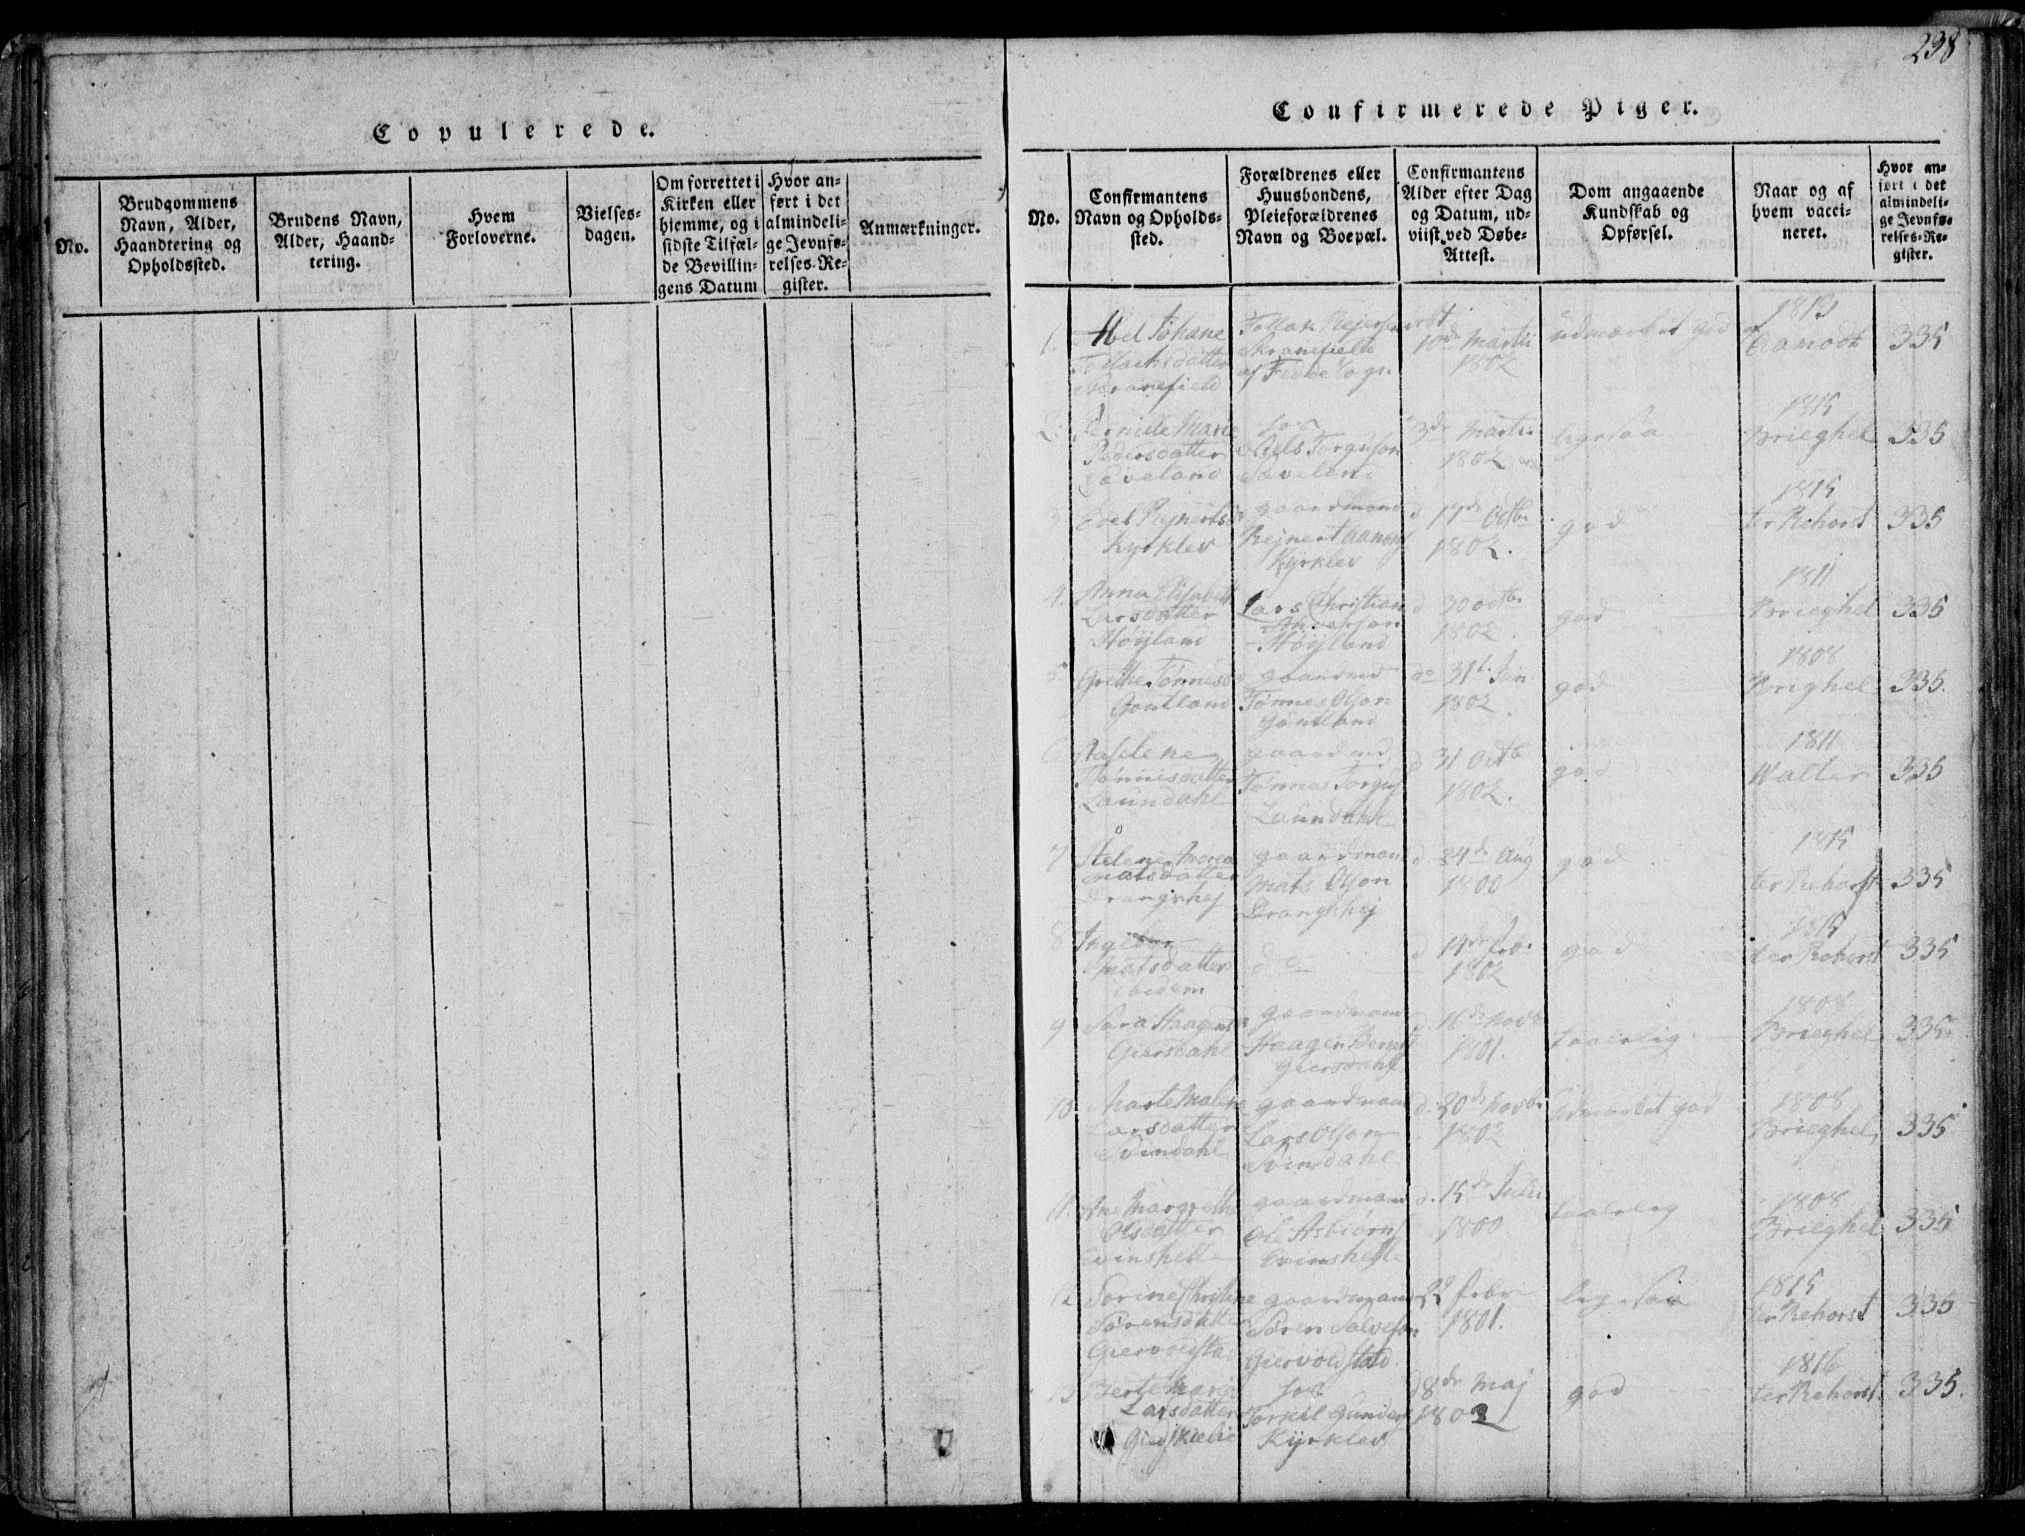 238
Copulerede.
No.
Brudgommens
Navn, Alder,
Haandtering og
Opholdssted.
Brudens Navn,
Alder, Haand-
tering.
Hvem
Forloverne.
Vielses-
dagen.
Om forrettet i
Kirken eller
hiemme, og i
sidste Tilfæl-
de Bevillin-
gens Datum
Hvor an-
ført i det
almindeli-
ge Jevnfø-
relses-Re-
gister.
Anmærkninger.
Confirmerede Piger.
No.
Confirmantens
Navn og Opholds-
sted.
Forældrenes eller
Huusbondens,
Pleieforældrenes
Navn og Boepæl.
Confirmantens
Alder efter Dag
og Datum, ud-
viist ved Døbe-
Attest.
Dom angaaende
Kundskab og
Opførsel.
Naar og af
hvem vacci-
neret.
Hvor an-
ført i det
almindeli-
ge Jevnfø-
relses-Re-
gister.
1.
Abel Johane
Tollachsdatter
Skranefield
Tollak Rejersen
Skranefield
af Fedde Sogn
10de Martii
1802
udmærket god
1813
Aamodt
335
2.
Pernille Marie
Pedersdatter
Søveland
for
Niels Torguson
Søveland
3de Martii
1802
ligesaa
1815
Brieghel
335
3
Edel Rejnertsd
Kyrklev
gaardmand
Rejnert Aanons
Kyrklev
d 17de Octbr
1802.
god
1815
ter Rehorst
335
4.
Anna Elisabeth
Larsdatter
Høyland
Lars Christian
Anderson
Høyland
d 30 octbr
1802.
god
1811
Brieghel
335
5
Grethe Tønnesd
Gontland
gaardmd
Tønnes Olson
Gontland
do 31t Jan.
1802.
god
1808
Brighel
335.
6
Taselene
Tønnesdatter
Laundahl
gaardmd
Tønnes Torgus
Laundahl
d 31 Octb
1802.
god
1811
Walter
335
7
Helene Andrea
Matsdatter
Drangshej
gaardmand
Mats Olson
Drangshej
d. 24de Aug
1800
god
1815
ter Rehorst
335
8
Ingebor
Matsdatter
ibidem
do
d 14de febr
1802
god
1815
ter Rehorst
335
9
Sara Haagensd
Giersdahl
gaardmand
Haagen Berns
Giersdahl
d. 16de Novb
1801.
taalelig
1808
Brieghel
335
10
Marte Malene
Larsdatter
Svindahl
gaardmand
Lars Olson
Svindahl
d. 20de Novbr
1802
Udmærket god
1808
Brieghel
335
11.
Ane Margrethe
Olsdatter
Evinshelle
gaardmand
Ole Asbiørns
Evinshelle
d. 15de Julii
1800
taalelig
1808
Brieghel
335
12
Sorine Christine
Sørensdatter
Giervoldstad
gaardmand
Søren Salveson
Giervoldstad
22 febr
1801.
ligesaa
1815
ter Rehorst
335
13
Berte Marie
Larsdatter
for
Torkil Gunders
Kyrklev
d 8de Maj
1802
god
1816
ter Rehorst
335.